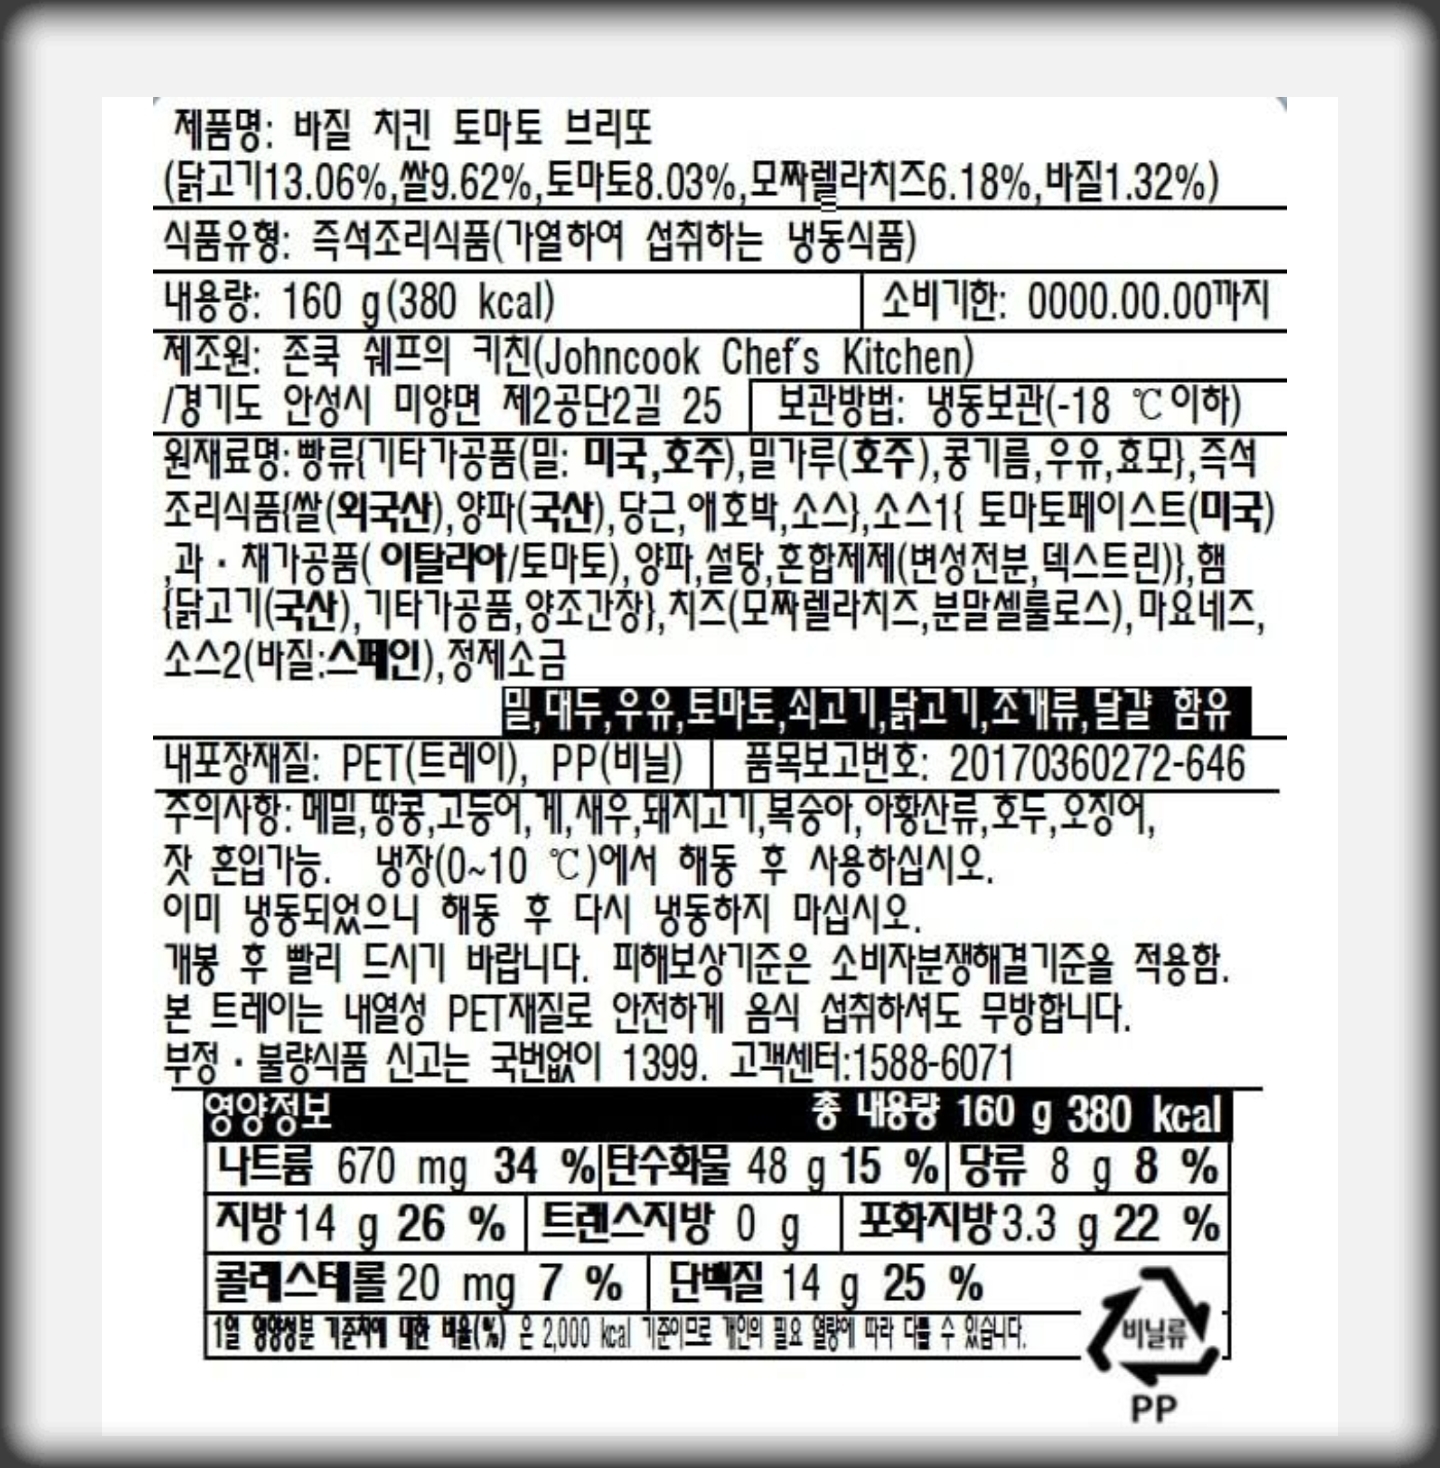 제품명: 바질 치킨 토마토 브리또
(닭고기13.06%,쌀9.62%,토마토8.03%,모짜렐라치즈6.18%,바질1.32%)
식품유형: 즉석조리식품(가열하여 섭취하는 냉동식품)
내용량: 160 g(380 kcal) 소비기한: 0000.00.00까지
제조원: 존쿡 쉐프의 키친(Johncook Chef's Kitchen)
/경기도 안성시 미양면 제2공단2길 25 보관방법: 냉동보관(-18 ℃이하)
원재료명:빵류{기타가공품(밀: 미국,호주),밀가루(호주),콩기름,우유,효모},즉석
조리식품{쌀(외국산),양파(국산),당근,애호박,소스},소스1{ 토마토페이스트(미국)
,과·채가공품( 이탈리아/토마토),양파,설탕,혼합제제(변성전분,덱스트린)},햄
{닭고기(국산),기타가공품,양조간장},치즈(모짜렐라치즈,분말셀룰로스),마요네즈,
소스2(바질:스페인),정제소금
밀,대두,우유,토마토,쇠고기,닭고기,조개류,달걀 함유
내포장재질: PET(트레이), PP(비닐) 품목보고번호: 20170360272-646
주의사항:메밀,땅콩,고등어,게,새우,돼지고기,복숭아,아황산류,호두,오징어,
잣 혼입가능. 냉장(0~10 ℃)에서 해동 후 사용하십시오.
이미 냉동되었으니 해동 후 다시 냉동하지 마십시오.
개봉 후 빨리 드시기 바랍니다. 피해보상기준은 소비자분쟁해결기준을 적용함.
본 트레이는 내열성 PET재질로 안전하게 음식 섭취하셔도 무방합니다.
부정·불량식품 신고는 국번없이 1399. 고객센터:1588-6071
영양정보 총 내용량 160 g 380 kcal
나트륨 670 mg 34 % 탄수화물 48 g 15 % 당류 8 g 8 %
지방 14 g 26 % 트랜스지방 0 g 포화지방 3.3 g 22 %
콜레스테롤 20 mg 7 % 단백질 14 g 25 %
1일 영양성분 기준치에 대한 비율(%) 은 2,000 kcal 기준이므로 개인의 필요 열량에 따라 다를 수 있습니다.
비닐류
PP